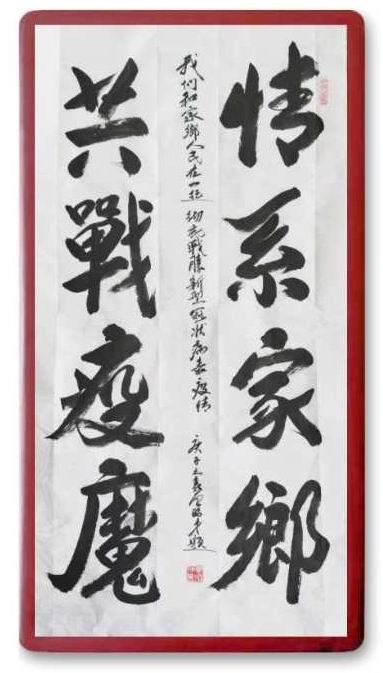 情系家鄉
我们和家鄉人民在一起彻底戰勝新型冠状病毒疫情
共戰疫魔
庚子之春
題